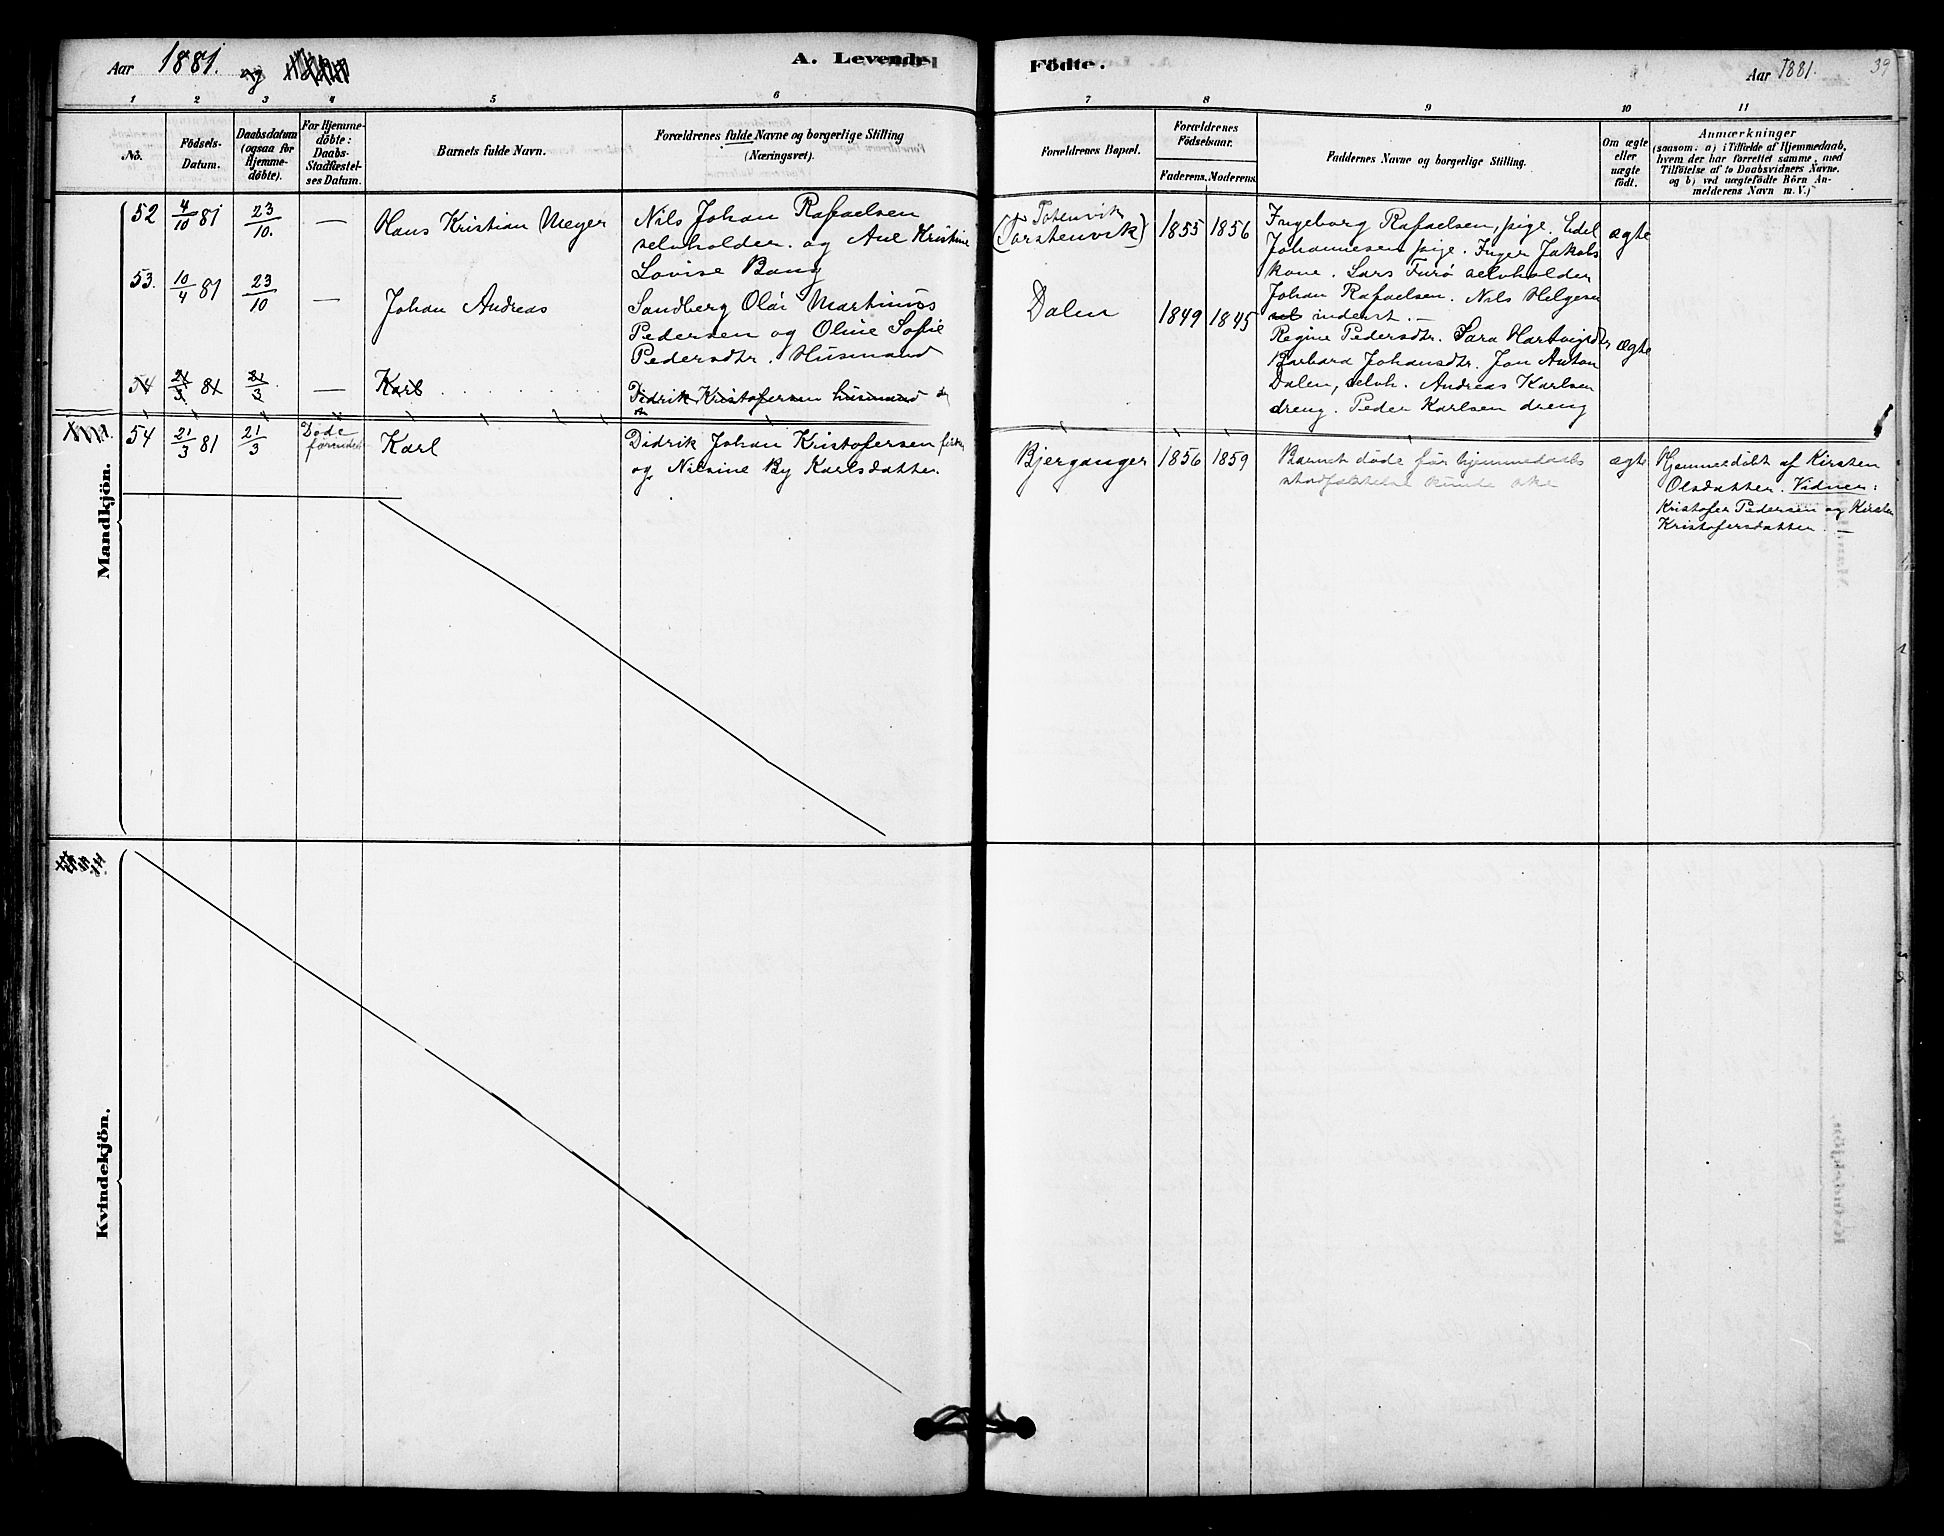 Aar 1881. og
A. Levende Födte.
Aar 1881.
39
1 2 3 4 5 6 7 8 9 10 11
No.
Födsels-Datum.
Daabsdatum (ogsaa for Hjemme-döbte).
For Hjemme-döbte: Daabs-Stadfæstel-ses Datum.
Barnets fulde Navn.
Forældrenes fulde Navne og borgerlige Stilling (Næringsvei).
Forældrenes Bopæl.
Forældrenes Födselsaar.
Faderens. Moderens.
Faddernes Navne og borgerlige Stilling.
Om ægte eller uægte födt.
Anmærkninger
(saasom: a) i Tilfælde af Hjemmedaab,
hvem der har forrettet samme, med
Tilföielse af to Daabsvidners Navne,
og b) ved uægtefödte Börn An-
melderens Navn m. V.)
Mandkjön.
52 4/10 81 23/10. — Hans Kristian Meyer
Nils Johan Rafaelsen
selvholder. og Ane Kristine
Lovise Bang
Totenvik
(Torstenvik) 1855 1856
Ingeborg Rafaelsen, pige. Edel
Johannesen pige. Inger Jakobs
kone. Lars Furö selvholder
Johan Rafaelsen. Nils Helgesen
inderst. —
ægte
53. 10/4 81 23/10 — Johan Andreas
Sandberg Olai Martinus
Pedersen og Oline Sofie
Pedersdtr. Husmand
Dalen 1849 1845
Regine Pedersdtr. Sara Hartvigsdtr
Barbara Johansdtr. Jon Anton
Dalen, selvh. Andreas Karlsen
dreng. Peder Karlsen dreng
ægte
54 21/3 81 21/3 — Karl
Didrik Kristofersen husmand
54 21/3 81 21/3 Döde forinden Karl
Didrik Johan Kristofersen
og Nilsine By Karlsdatter.
Bjerganger 1856 1859
Barnet döde för hjemmedaabs
stadfæstelse kunde ske
ægte
Hjemmedöbt af Kirsten
Olsdatter. Vidner:
Kristofer Pedersen og Kirsten
Kristofersdatter. —
Kvindekjön.